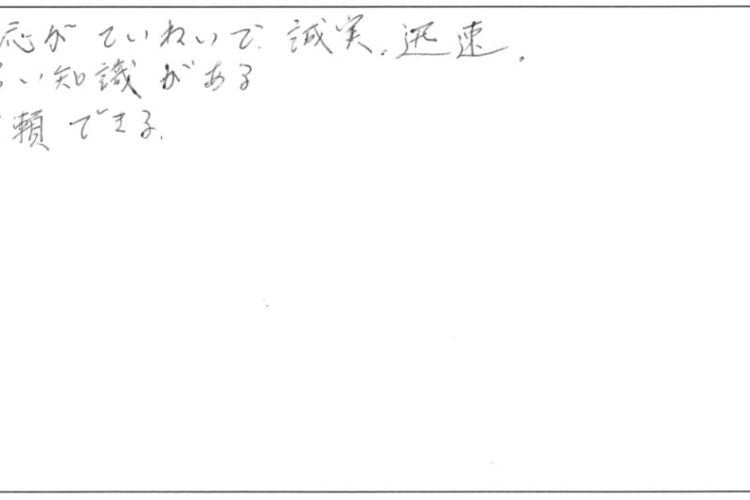 応がていねいで、誠実、迅速。
い知識がある
頼できる。